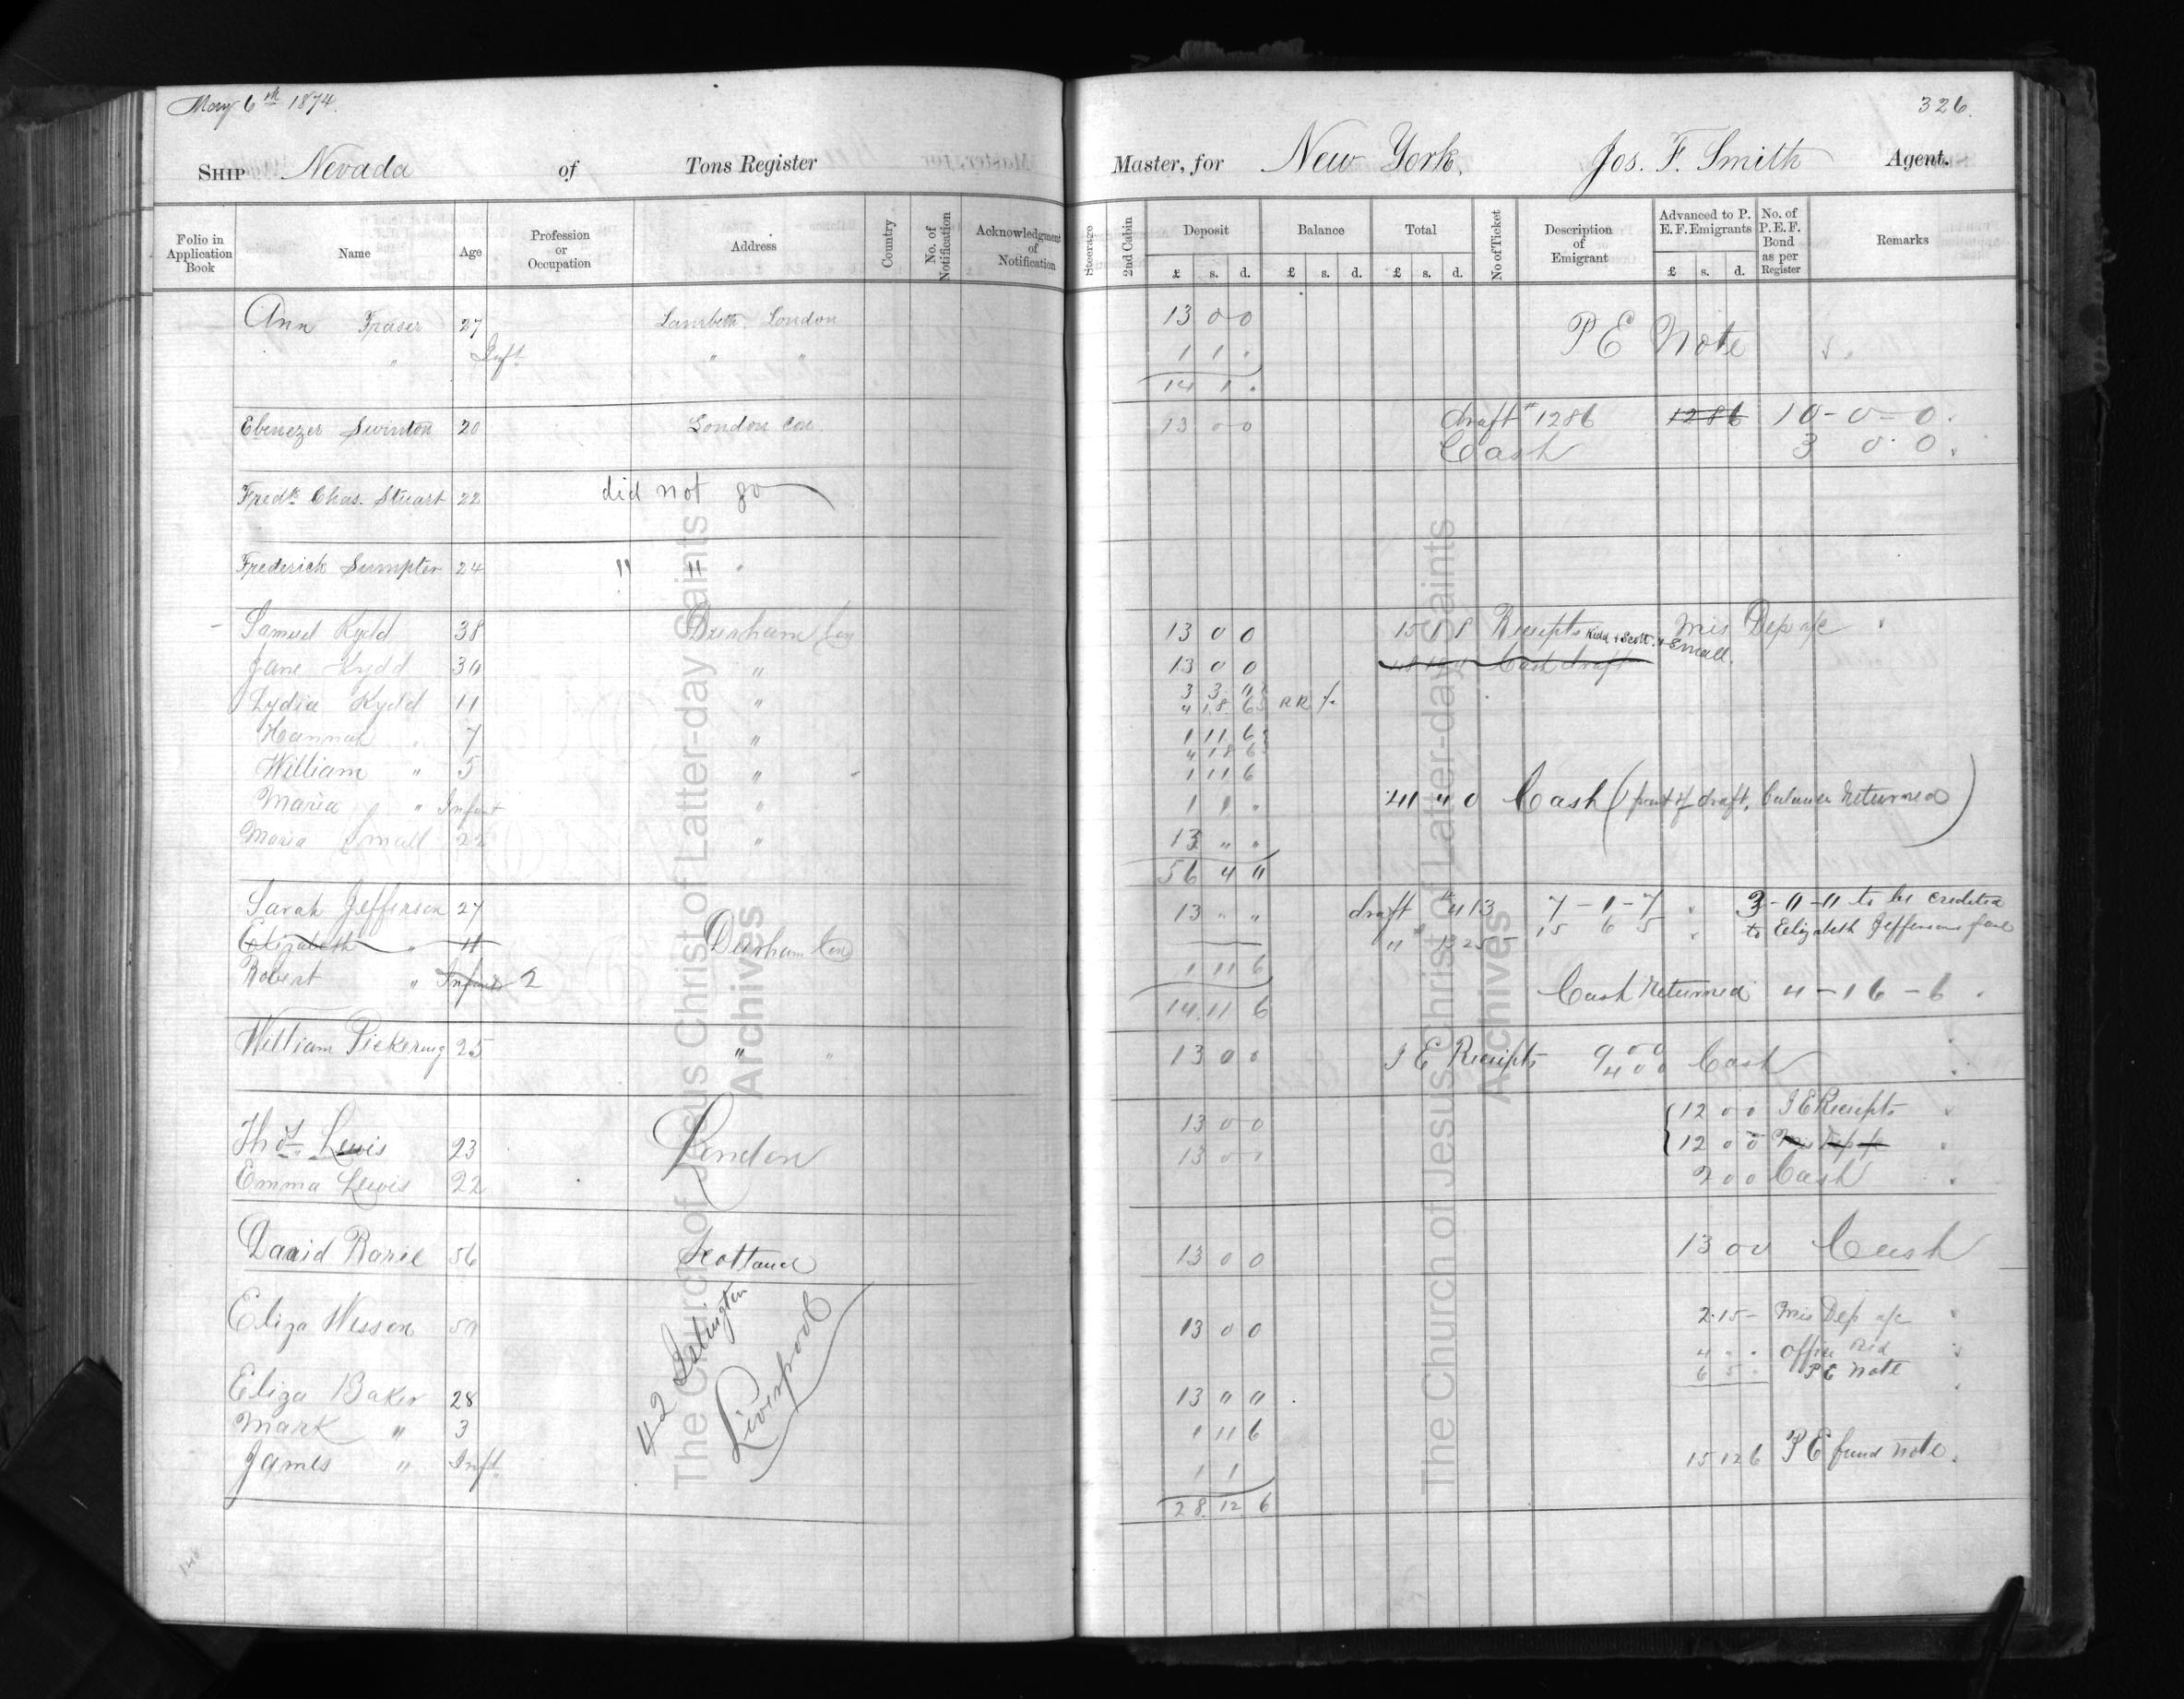 May 6th 1874.
326.
Ship Nevada of Tons Register
Master, for New York. Jos. F. Smith Agent.
Folio in Application Book | Name | Age | Profession or Occupation | Address | Country | No. of Notification | Acknowledgment of Notification | Steerage | 2nd Cabin | Deposit £ s. d. | Balance £ s. d. | Total £ s. d. | No of Ticket | Description of Emigrant | Advanced to P. E. F. Emigrants £ s. d. | No. of P. E. F. Bond as per Register | Remarks
Ann Fraser 27 Lambeth, London 13 0 0 P E Note
" Inft. " " 1 1 "
14 1 "
Ebenezer Swinton 20 London Con. 13 0 0 draft # 1286 1286 10 - 0 - 0.
Cash 3 0 0.
Fredk Chas. Stuart 22 did not go
Frederick Sumpter 24 " "
Samuel Kydd 38 Durham Con 13 0 0 15 1 8 Receipts Kidd & Scott. & Small. Mis Dep a/c
Jane Kydd 30 " 13 0 0 Cash draft
Lydia Kydd 11 " 3 3 0
4 18 6 R R
Hannah " 7 " 1 11 6
4 18 6
William " 5 " 1 11 6
Maria " Infant " 1 1 " 41 4 0 Cash (part of draft, balance returned)
Maria Small 22 " 13 " "
56 4 "
Sarah Jefferson 27 13 " " draft # 413 7 - 1 - 7 3 - 11 - 11 to be credited
Elizabeth " 11 Durham Con " # 15 6 5 to Elizabeth Jeffersons fare
Robert " Infant 2 1 11 6
14 11 6 Cash returned 4 - 16 - 6
William Pickering 25 " " 13 0 0 I E Receipts 9 0 0 Cash
4 0 0
Thos. Lewis 23 London 13 0 0 12 0 0 I E Receipts
13 0 0 12 0 0 Mis Dep a/c
Emma Lewis 22 2 0 0 Cash
David 56 Scotland 13 0 0 13 0 0 Cash
Eliza Wesson 50 42 Islington Liverpool 13 0 0 2 15 - Mis Dep a/c
4 " " Office
6 5 " P E Note
Eliza Baker 28 13 " "
Mark " 3 1 11 6
James " Inft. 1 1 15 12 6 P E fund note.
28 12 6
The Church of Jesus Christ of Latter-day Saints
Archives
The Church of Jesus Christ of Latter-day Saints
Archives